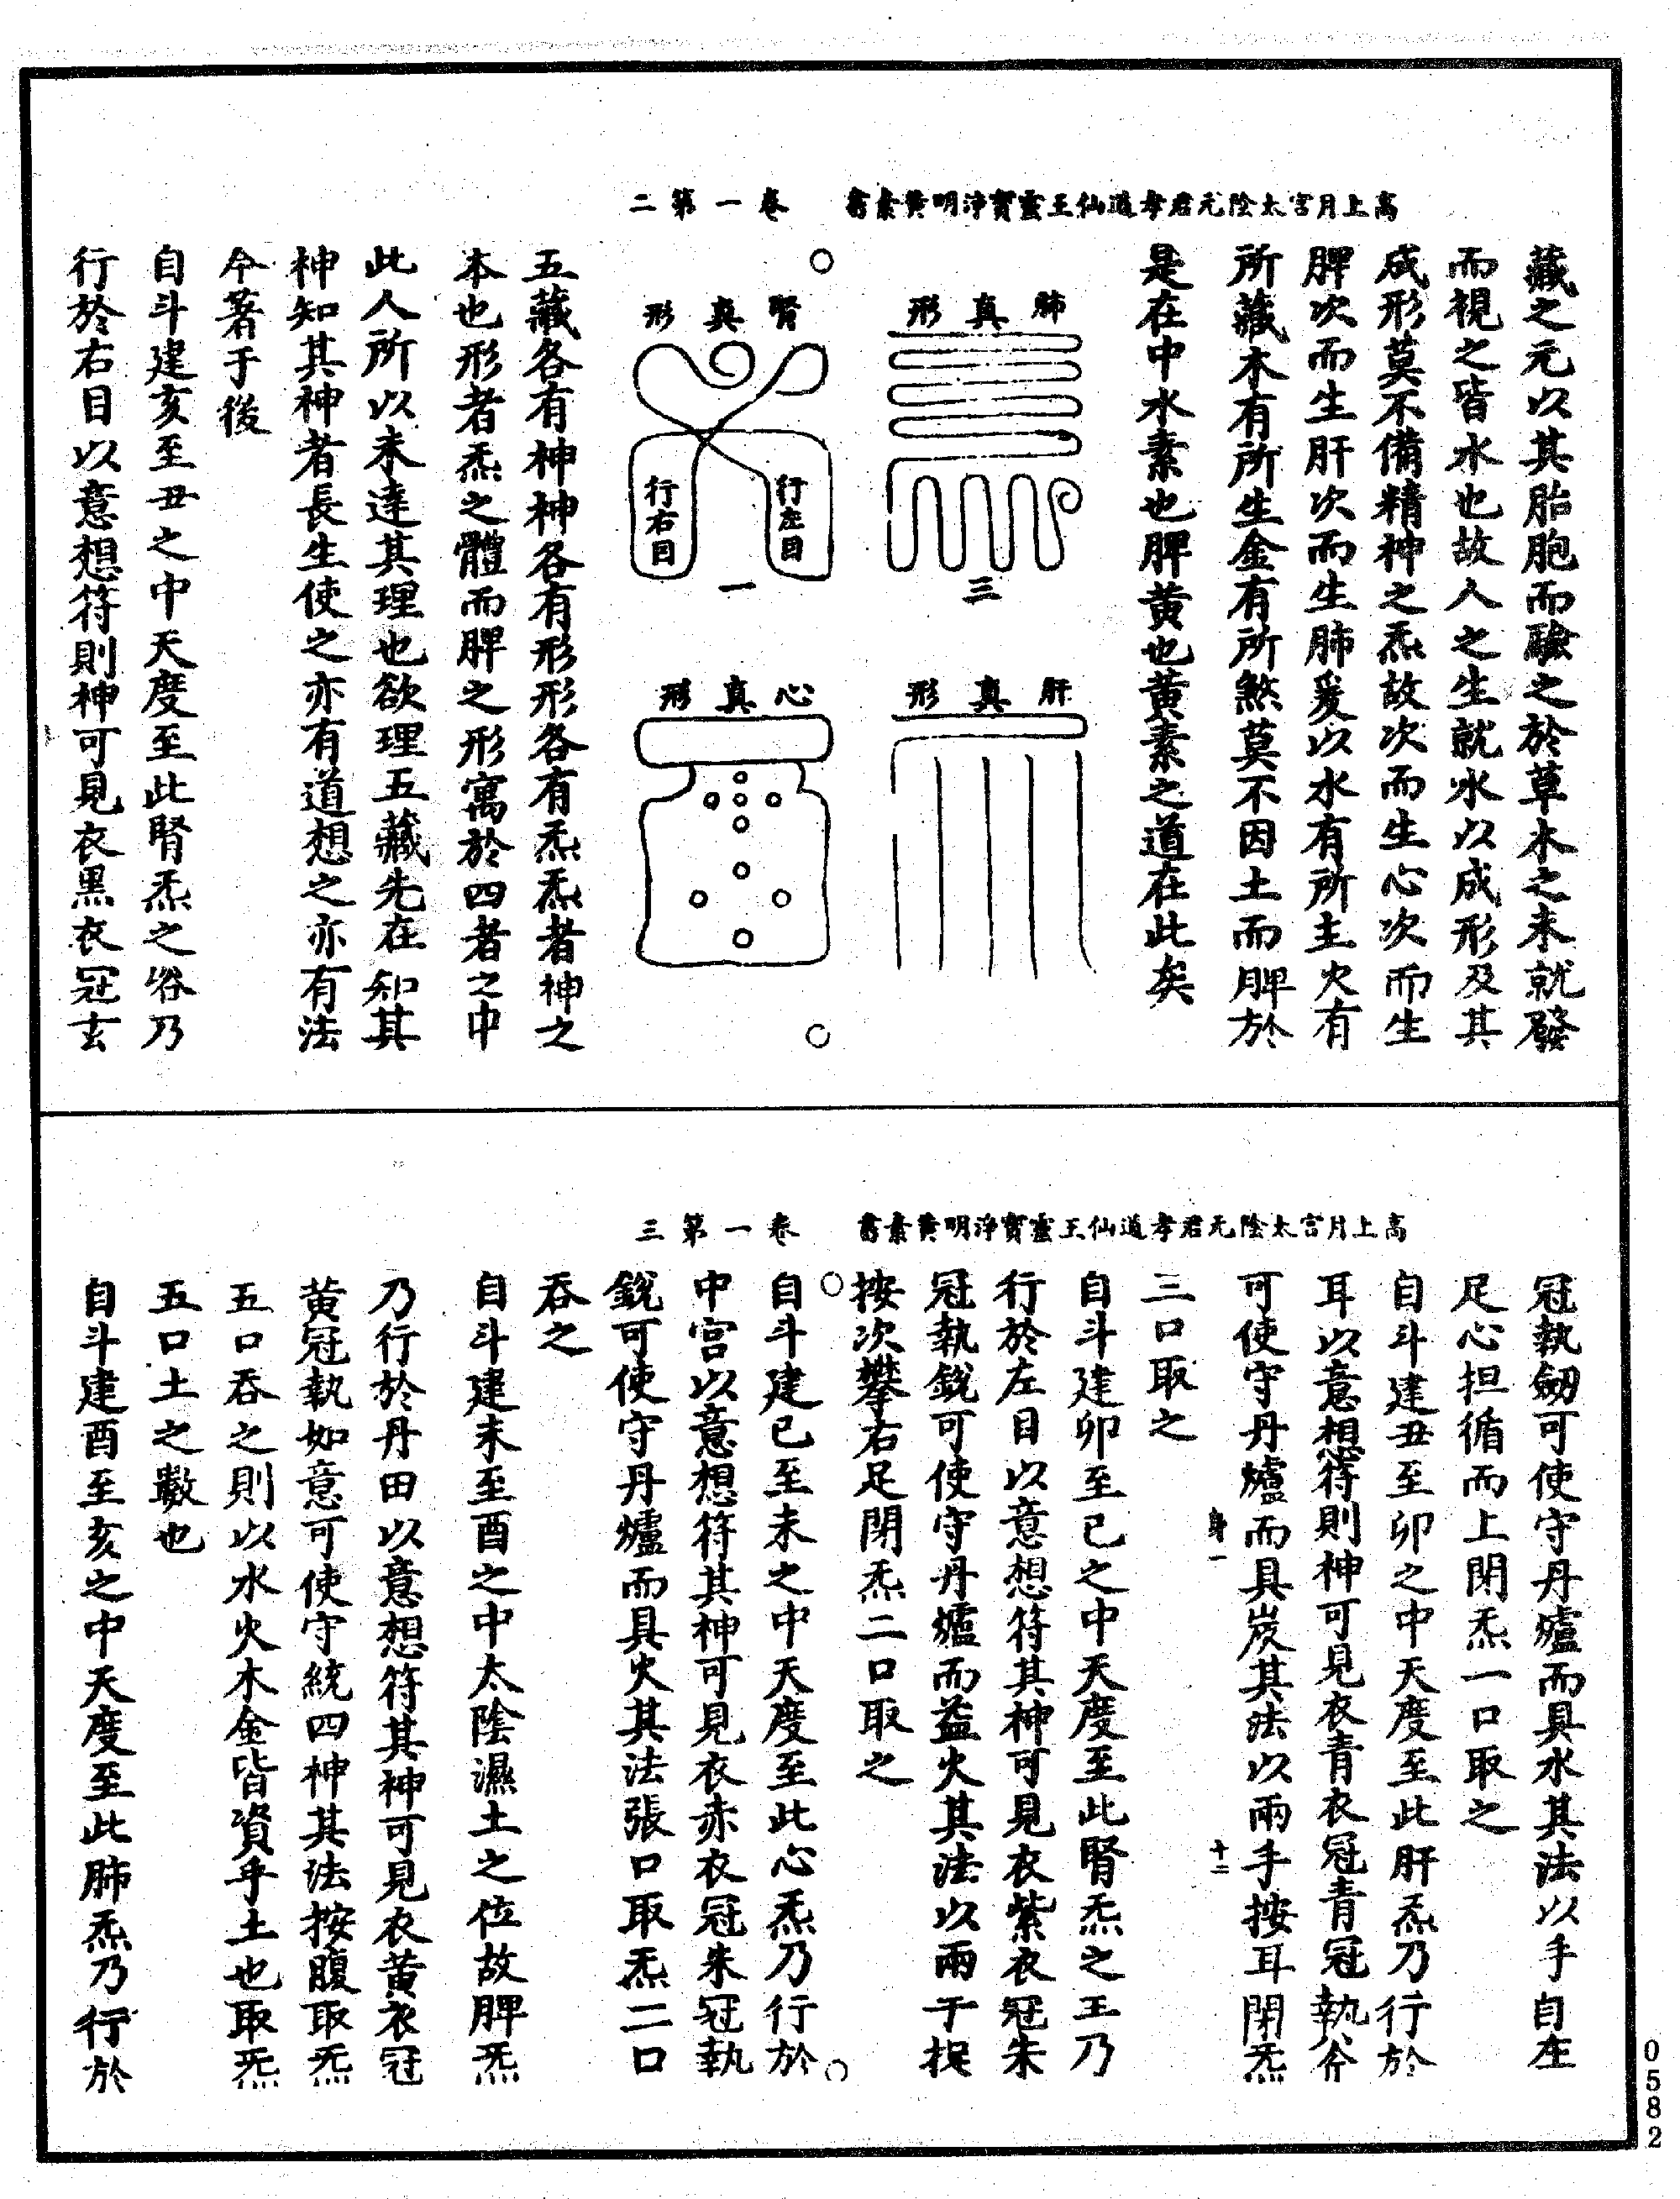 高上月宮太陰元君孝道仙王靈寶淨明黃素書　卷一第二
藏之元以其胎胞而驗之於草木之未就發
而視之皆水也故人之生就水以成形及其
成形莫不備精神之炁故次而生心次而生
脾次而生肝次而生肺爰以水有所主火有
所藏木有所生金有所煞莫不因土而脾於
是在中水素也脾黃也黃素之道在此矣
肺真形
三
肝真形
腎真形
行左目
行右目
一
心真形
五藏各有神神各有形形各有炁炁者神之
本也形者炁之體而脾之形寓於四者之中
此人所以未達其理也欲理五藏先在知其
神知其神者長生使之亦有道想之亦有法
今著于後
自斗建亥至丑之中天度至此腎炁之谷乃
行於右目以意想符則神可見衣黑衣冠玄
高上月宮太陰元君孝道仙王靈寶淨明黃素書　卷一第三
冠執劒可使守丹爐而具水其法以手自左
足心担循而上閉炁一口取之
自斗建丑至卯之中天度至此肝炁乃行於
耳以意想符則神可見衣青衣冠青冠執斧
可使守丹爐而具炭其法以兩手按耳閉炁
身一
十二
三口取之
自斗建卯至巳之中天度至此腎炁之王乃
行於左目以意想符其神可見衣紫衣冠朱
冠執銳可使守丹爐而益火其法以兩手捉
按次攀右足閉炁二口取之
自斗建巳至未之中天度至此心炁乃行於
中宮以意想符其神可見衣赤衣冠朱冠執
銳可使守丹爐而具火其法張口取炁二口
吞之
自斗建未至酉之中太陰濕土之位故脾炁
乃行於丹田以意想符其神可見衣黃衣冠
黃冠執如意可使守統四神其法按腹取炁
五口吞之則以水火木金皆資乎土也取炁
五口土之數也
自斗建酉至亥之中天度至此肺炁乃行於
0582